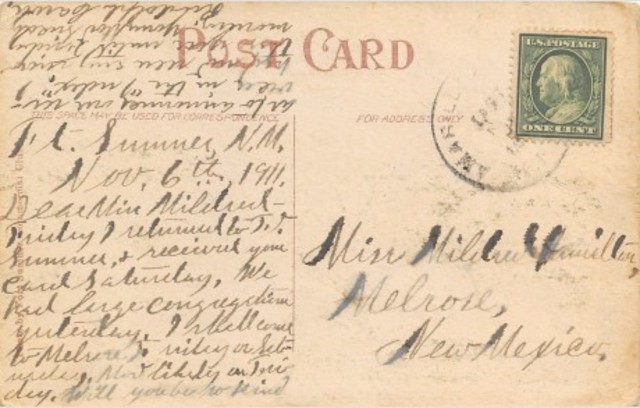 POST CARD
THIS SPACE MAY BE USED FOR CORRESPONDENCE
FOR ADDRESS ONLY
U.S. POSTAGE
ONE CENT
Ft. Sumner, N.M.
Nov. 6th, 1911.
Dear Miss Mildred-
Friday I returned to Ft.
Sumner, & received your
card Saturday. We
had large congregation
yesterday. I shall come
to Melrose Friday or Sat-
urday. Most likely on Fri-
day. Will you be so kind
as to announce our ser-
vices in the "Index"?
morning
until Friday
Miss Mildred
Melrose,
New Mexico.